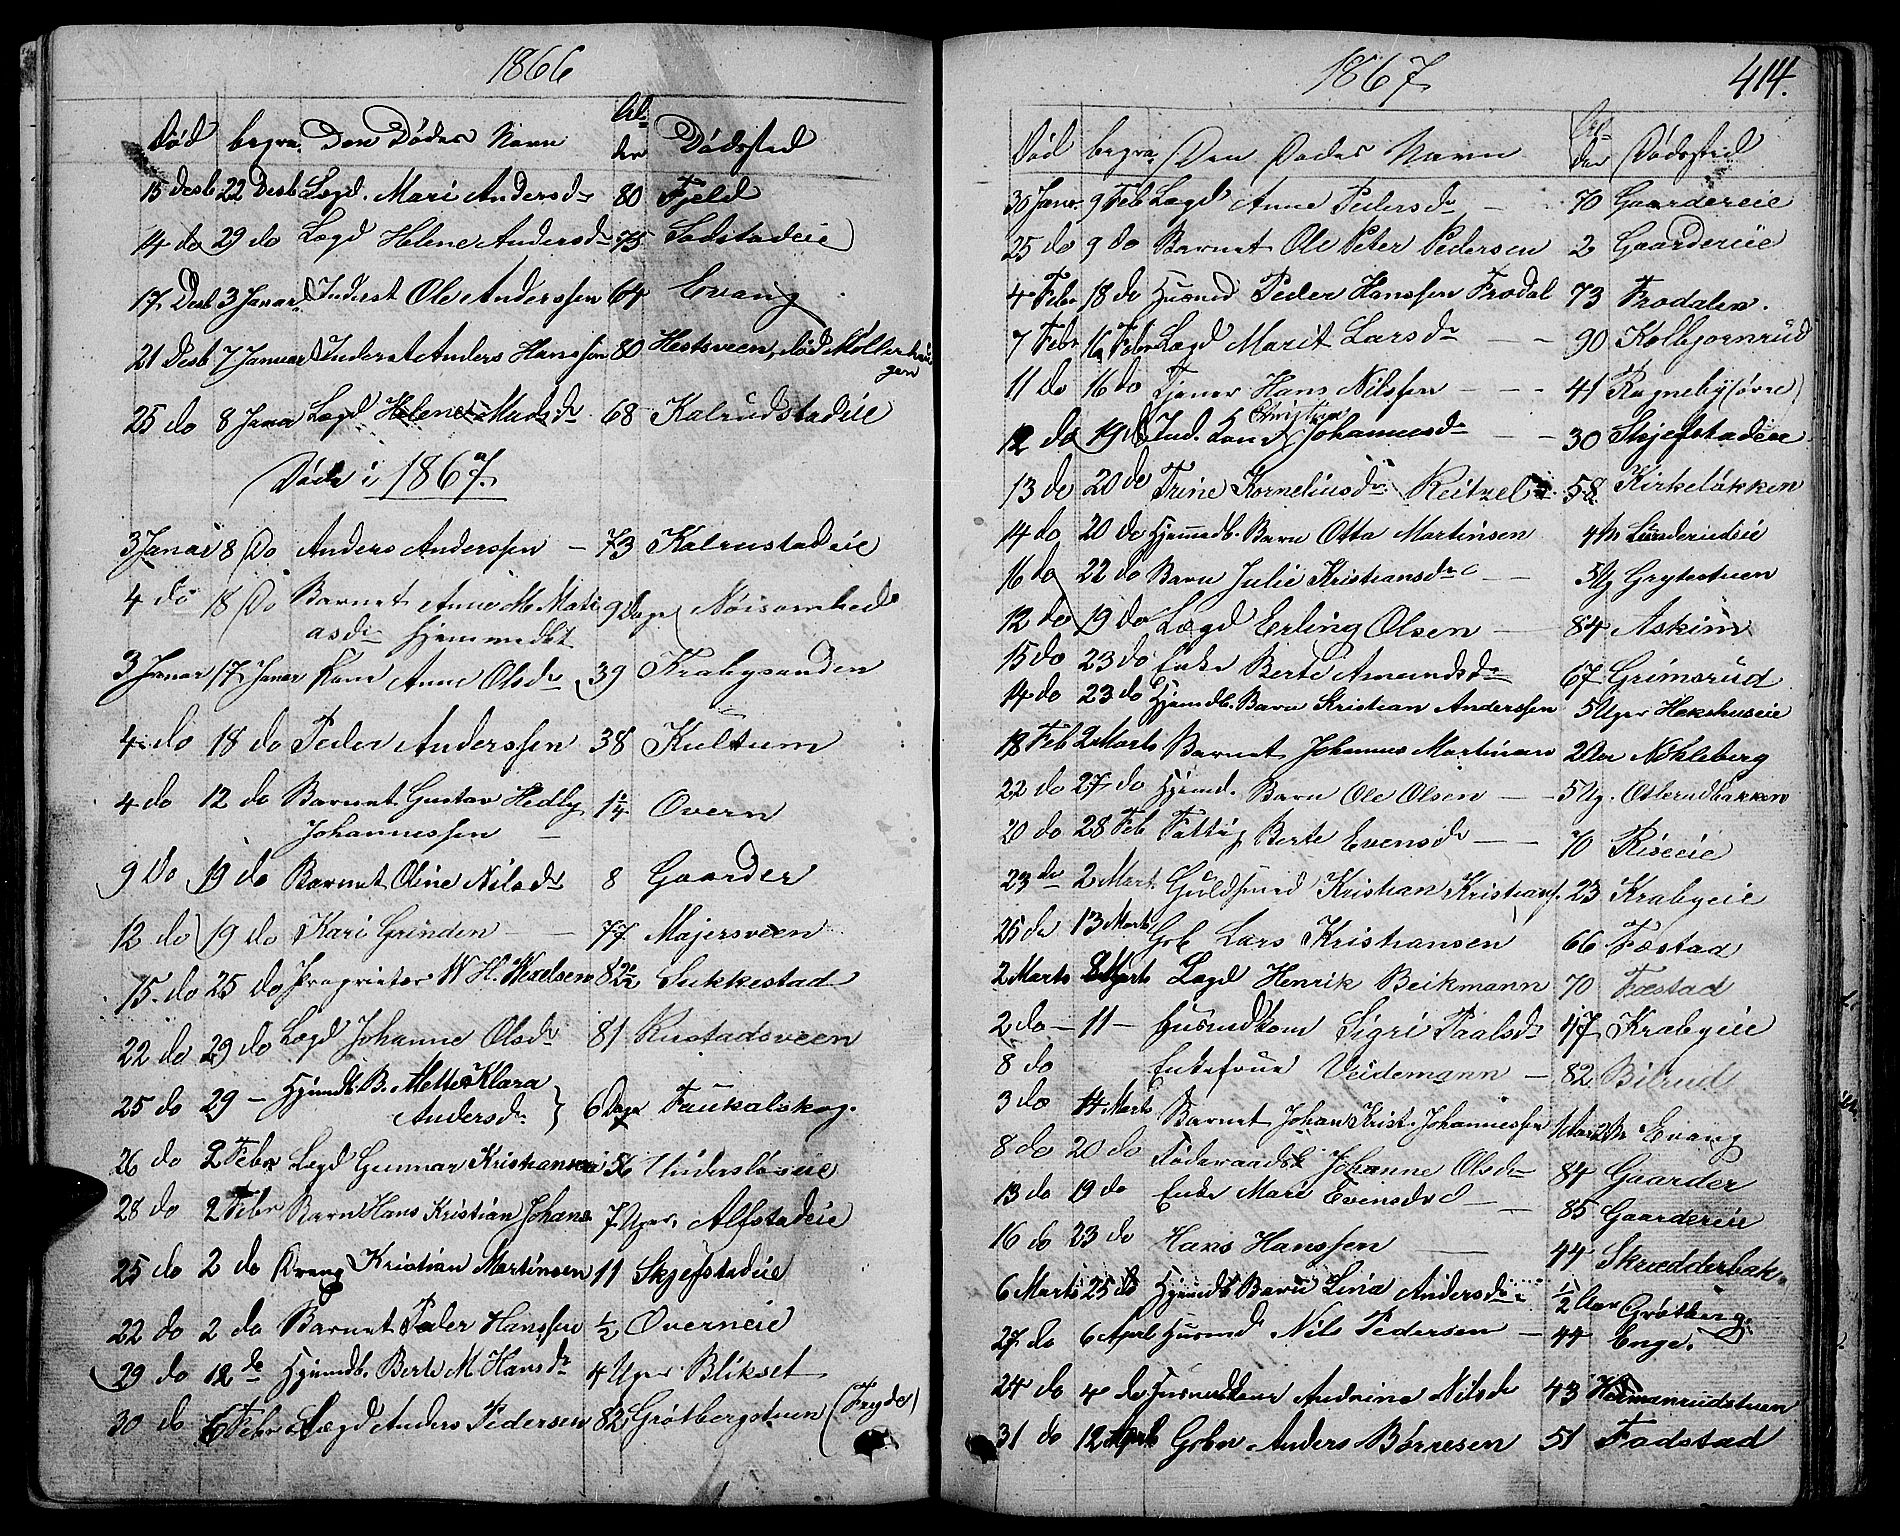 1866
Død begra. Den Dødes Navn Al=der Dødssted
15 Desb 22 Desb Lægd. Mari Andersdr 80 Fjeld
14 do 29 do Lægd Helene Andersdr 75 Sodstadeie
17 Desb 3 Januar Inderst Ole Anderssen 64 Evang
21 Desb 7 Januar Inderst Anders Hanssen 80 Hestsveen, død Møllerhau
gen
25 do 8 Januar Lægd Helene Madsdr 68 Kalrudstadeie
Døde i 1867.
3 Januar 8 Do Anders Anderssen — 73 Kalrustadeie
4 do 18 Do Barnet Anne M. Mati 9 Dage Nøisomhed
asdr Hjemmedbt
3 Januar 17 Januar Kone Anne Olsdr 39 Krabysanden
4 do 18 do Peder Anderssen 38 Kultum
4 do 12 do Barnet Gustav Hedly 1¼ Overn
Johannessen —
9 Do 19 do Barnet Oline Nilsdr 8 Gaarder
12 do 19 do Kari Grinden — 77 Majersveen
15 do 25 do Proprietær W. H. Wexelsen 82½ Sukkestad
22 do 29 do Lægd Johanne Olsdr 81 Rustadsveen
25 do 29 — Hjemdb. B. Mette Klara
Andersdr } 6 Dage Faukalskog.
26 do 2 Febr Lægd Gunnar Kristiansen 56 Hinderslöseie
28 do 2 Febr Barn Hans Kristian Johans 7 Uger. Alfstadeie
25 do 2 do Dreng Kristian Martinsen 11 Skjefstadeie
22 do 2 do Barnet Peder Hanssen ½ Overneie
29 do 12 do Hjemdb. Berte M. Hansdr 4 Uger Blikset
30 do 6 Febr Lægd Anders Pedersen 82 Grøtbergstuen (Fryde)
1867 414.
Død begra. Den Dødes Navn Al=der Dødssted
30 Janr 9 Feb Lægd Anne Pedersdr — 70 Gaardereie
25 do 9 do Barnet Ole Peter Pedersen 2 Gaardereie
4 Febr 18 do Husmd Peder Hanssen Frodal 73 Frodalen.
7 Febr 16 Febr Lægd Marit Larsdr — 90 Kolbjornrud
11 do 16 do Tjener Hans Nilssen — — 41 Rogneby (øvre)
Christine
12 do 19 do Ind. Kone Johannesdr — — 30 Skjefstadeie
13 do 20 do Trine Korneliusdr Reitzel 58 Kirkeløkken
14 do 20 do Hjemmedb. Barn Otta Martinsen 4 M Lunderudeie
16 do 22 do Barn Julie Kristiansdr — 5 Ug Grytestuen
12 do 19 do Lægd Erling Olsen — 84 Askim
15 do 23 do Enke Berte Amundsdr 67 Grimsrud
14 do 23 do Hjemdb. Barn Kristian Anderssen 5 Uger Hekshuseie
18 Feb 2 Marts Barnet Johannes Martinsen 2 Aar Nøkleberg
22 do 27 do Hjemd. Barn Ole Olsen — 5 Ug. Olterudbakken
20 do 28 Feb Fattig Berte Evensdr — — 70 Riseeie
23 do 2 Mart. Guldsmed Kristian Kristians. 23 Krabyeie
25 do 13 Marts Gbr Lars Kristiansen 66 Fæstad
2 Marts 8 Marts Lægd Henrik Beikmann 70 Fæstad
2 do — 11 — Husmdkone Sigri Paalsdr 47 Krabyeie
8 do Enkefrue Veidemann — 82 Bilrud
3 do 14 Marts Barnet Johan Krist. Johannessen 1 Aar 2 M Evang
8 do 20 do Føderaadsk Johanne Olsdr 84 Gaarder
13 do 19 do Enke Mari Evensdr — 85 Gaardereie
16 do 23 do Hans Hanssen — 44 Skrædderbak=
6 Marts 25 do Hjemdb Barn Lina Andersdr ½ Aar Grøtberg.
27 do 6 April Husmd Nils Pedersen — 44 Enge.
24 do 4 do Husmdkone Andrine Nilsdr 43 Hermanrudstuen
31 do 12 April Gbr Anders Børresen 51 Fodstad